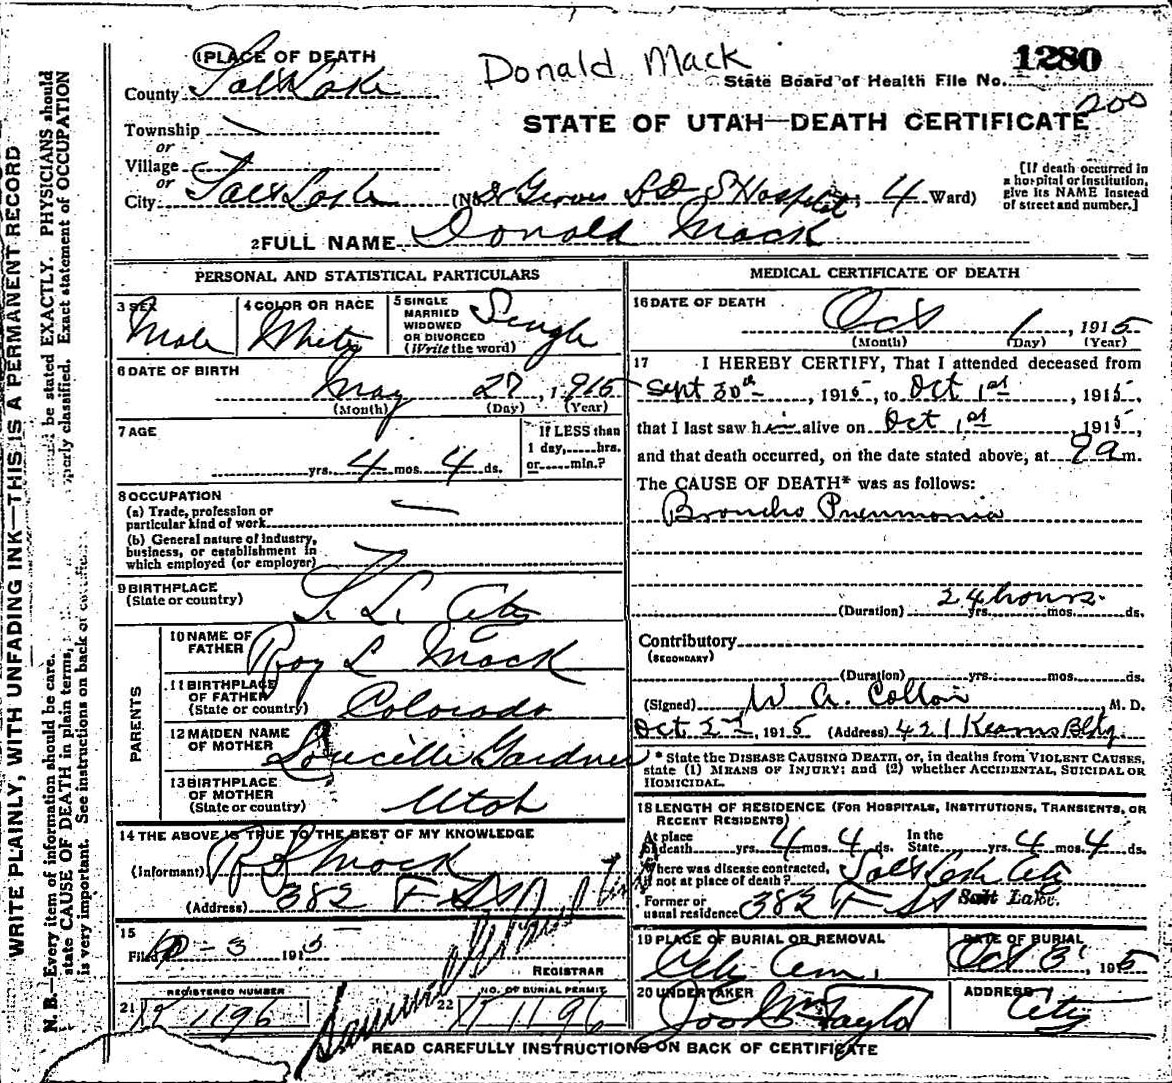 Donald Mack
1280
State Board of Health File No.
200
STATE OF UTAH—DEATH CERTIFICATE
1 PLACE OF DEATH
County Salt Lake
Township
or
Village
or
City Salt Lake (No. Groves L D S Hospital; 4 Ward)
[If death occurred in
a hospital or institution,
give its NAME instead
of street and number.]
2 FULL NAME Donald Mack
PERSONAL AND STATISTICAL PARTICULARS
3 SEX
Male
4 COLOR OR RACE
White
5 SINGLE
MARRIED
WIDOWED
OR DIVORCED
(Write the word)
Single
6 DATE OF BIRTH
May 27, 1915
(Month) (Day) (Year)
7 AGE
yrs. 4 mos. 4 ds.
If LESS than
1 day, hrs.
or min.?
8 OCCUPATION
(a) Trade, profession or
particular kind of work
(b) General nature of industry,
business, or establishment in
which employed (or employer)
9 BIRTHPLACE
(State or country)
S. L. City
PARENTS
10 NAME OF
FATHER
Roy L Mack
11 BIRTHPLACE
OF FATHER
(State or country)
Colorado
12 MAIDEN NAME
OF MOTHER
Loucille Gardner
13 BIRTHPLACE
OF MOTHER
(State or country)
Utah
14 THE ABOVE IS TRUE TO THE BEST OF MY KNOWLEDGE
(Informant) R L Mack
(Address) 382 F St
15
Filed 10-3 1915
REGISTRAR
21 REGISTERED NUMBER
K 1196
22 NO. OF BURIAL PERMIT
K 1196
MEDICAL CERTIFICATE OF DEATH
16 DATE OF DEATH
Oct 1, 1915
(Month) (Day) (Year)
17 I HEREBY CERTIFY, That I attended deceased from
Sept 30th, 1915, to Oct 1st, 1915,
that I last saw him alive on Oct 1st, 1915,
and that death occurred, on the date stated above, at 9 a m.
The CAUSE OF DEATH* was as follows:
Broncho Pneumonia
(Duration) 24 hours yrs. mos. ds.
Contributory
(SECONDARY)
(Duration) yrs. mos. ds.
(Signed) W A. Colton M. D.
Oct 2nd, 1915 (Address) 421 Kearns Bldg.
* State the DISEASE CAUSING DEATH, or, in deaths from VIOLENT CAUSES,
state (1) MEANS OF INJURY; and (2) whether ACCIDENTAL, SUICIDAL OR
HOMICIDAL.
18 LENGTH OF RESIDENCE (FOR HOSPITALS, INSTITUTIONS, TRANSIENTS, OR
RECENT RESIDENTS)
At place of death yrs. 4 mos. 4 ds. In the State yrs. 4 mos. 4 ds.
Where was disease contracted,
if not at place of death? Salt Lake City
Former or
usual residence 382 F St Salt Lake.
19 PLACE OF BURIAL OR REMOVAL
City Cem.
DATE OF BURIAL
Oct 3, 1915
20 UNDERTAKER
Jos Wm Taylor
ADDRESS
City
READ CAREFULLY INSTRUCTIONS ON BACK OF CERTIFICATE
WRITE PLAINLY, WITH UNFADING INK—THIS IS A PERMANENT RECORD
N. B.—Every item of information should be care. be stated EXACTLY. PHYSICIANS should
state CAUSE OF DEATH in plain terms, properly classified. Exact statement of OCCUPATION
is very important. See instructions on back of